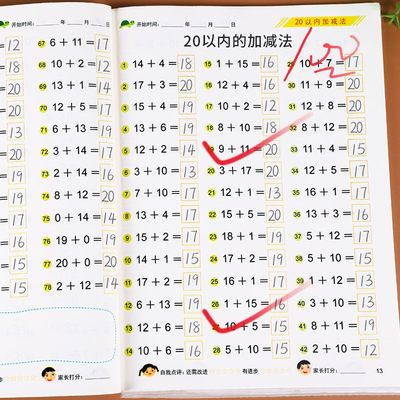 开始时间: 年 月 日
67 6+11=17
68 10+2=12
69 13+1=14
70 12+5=17
71 6+13=19
72 3+14=17
74 8+12=20
75 0+14=14
76 19+0=19
77 20+0=20
78 2+12=14
家长打分:
开始时间: 年 月 日
20以内加减法
20以内的加减法
1 14+4=18 15 1+15=16 29 10+7=17
2 17+3=20 16 10+2=12 30 11+9=20
3 15+4=19 17 12+4=16 31 12+8=20
4 13+4=17 18 8+10=18 32 8+12=20
5 12+2=14 19 9+11=20 33 15+4=19
6 3+10=13 20 3+17=20 34 12+5=17
7 7+10=17 21 12+1=13 35 16+1=17
8 13+4=17 22 15+5=20 36 13+3=16
11 17+2=19 25 16+1=17 39 1+12=13
12 6+13=19 26 1+15=16 40 3+10=13
13 12+6=18 10+5=15 41 8+11=19
14 10+6=16 28 5+10=15 42 2+10=12
自我点评: 还需改进 有进步 家长打分:
13